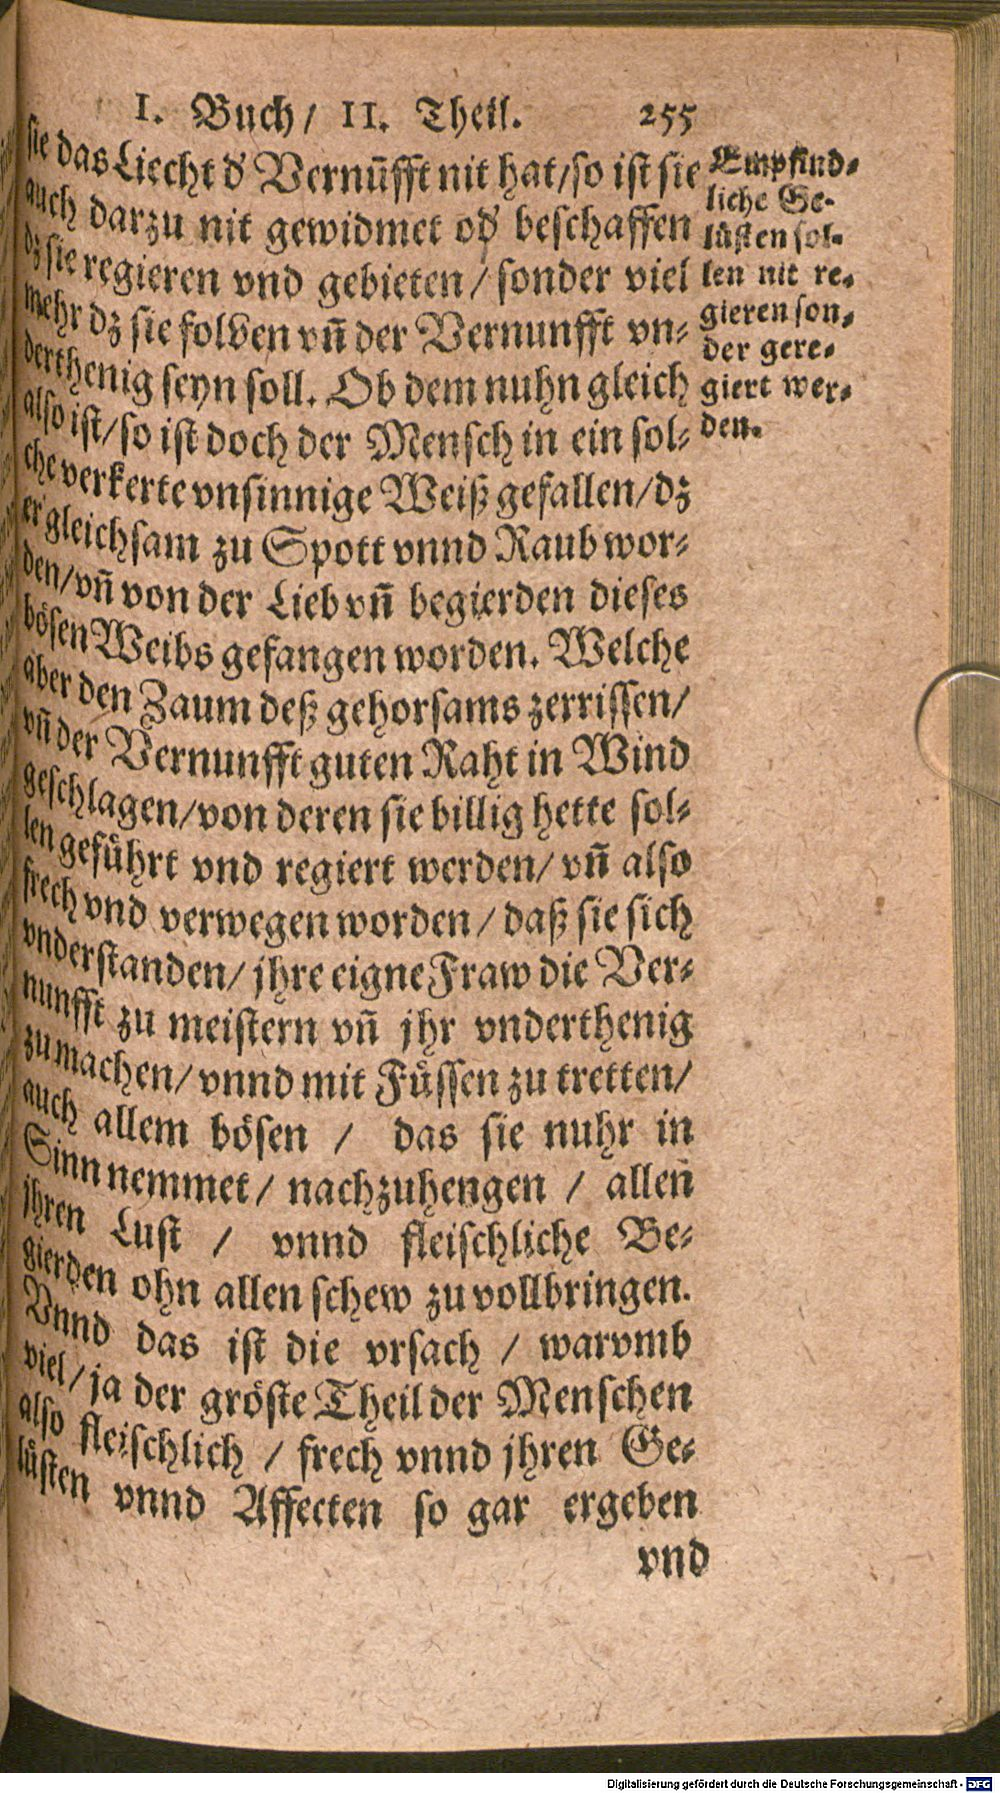 I. Buch/ II. Theil. 255
sie das Liecht d' Vernũfft nit hat/so ist sie
auch darzu nit gewidmet od' beschaffen
dz sie regieren vnd gebieten/ sonder viel
mehr dz sie folgen vñ der Vernunfft vn-
derthenig seyn soll. Ob dem nuhn gleich
also ist/so ist doch der Mensch in ein sol-
che verkerte vnsinnige Weiß gefallen/dz
er gleichsam zu Spott vnnd Raub wor-
den/vñ von der Lieb vñ begierden dieses
bösen Weibs gefangen worden. Welche
aber den Zaum deß gehorsams zerrissen/
vñ der Vernunfft guten Raht in Wind
geschlagen/von deren sie billig hette sol-
len geführt vnd regiert werden/ vñ also
frech vnd verwegen worden/ daß sie sich
vnderstanden/ jhre eigne Fraw die Ver-
nunfft zu meistern vñ jhr vnderthenig
zumachen/ vnnd mit Füssen zu tretten/
auch allem bösen / das sie nuhr in
Sinn nemmet/ nachzuhengen / allen
jhren Lust / vnnd fleischliche Be-
gierden ohn allen schew zu vollbringen.
Vnnd das ist die vrsach / warvmb
viel/ja der gröste Theil der Menschen
also fleischlich / frech vnnd jhren Ge-
lüsten vnnd Affecten so gar ergeben
vnd
Empfind-
liche Ge-
lüsten sol-
len nit re-
gieren son-
der gere-
giert wer-
den.
Digitalisierung gefördert durch die Deutsche Forschungsgemeinschaft - DFG